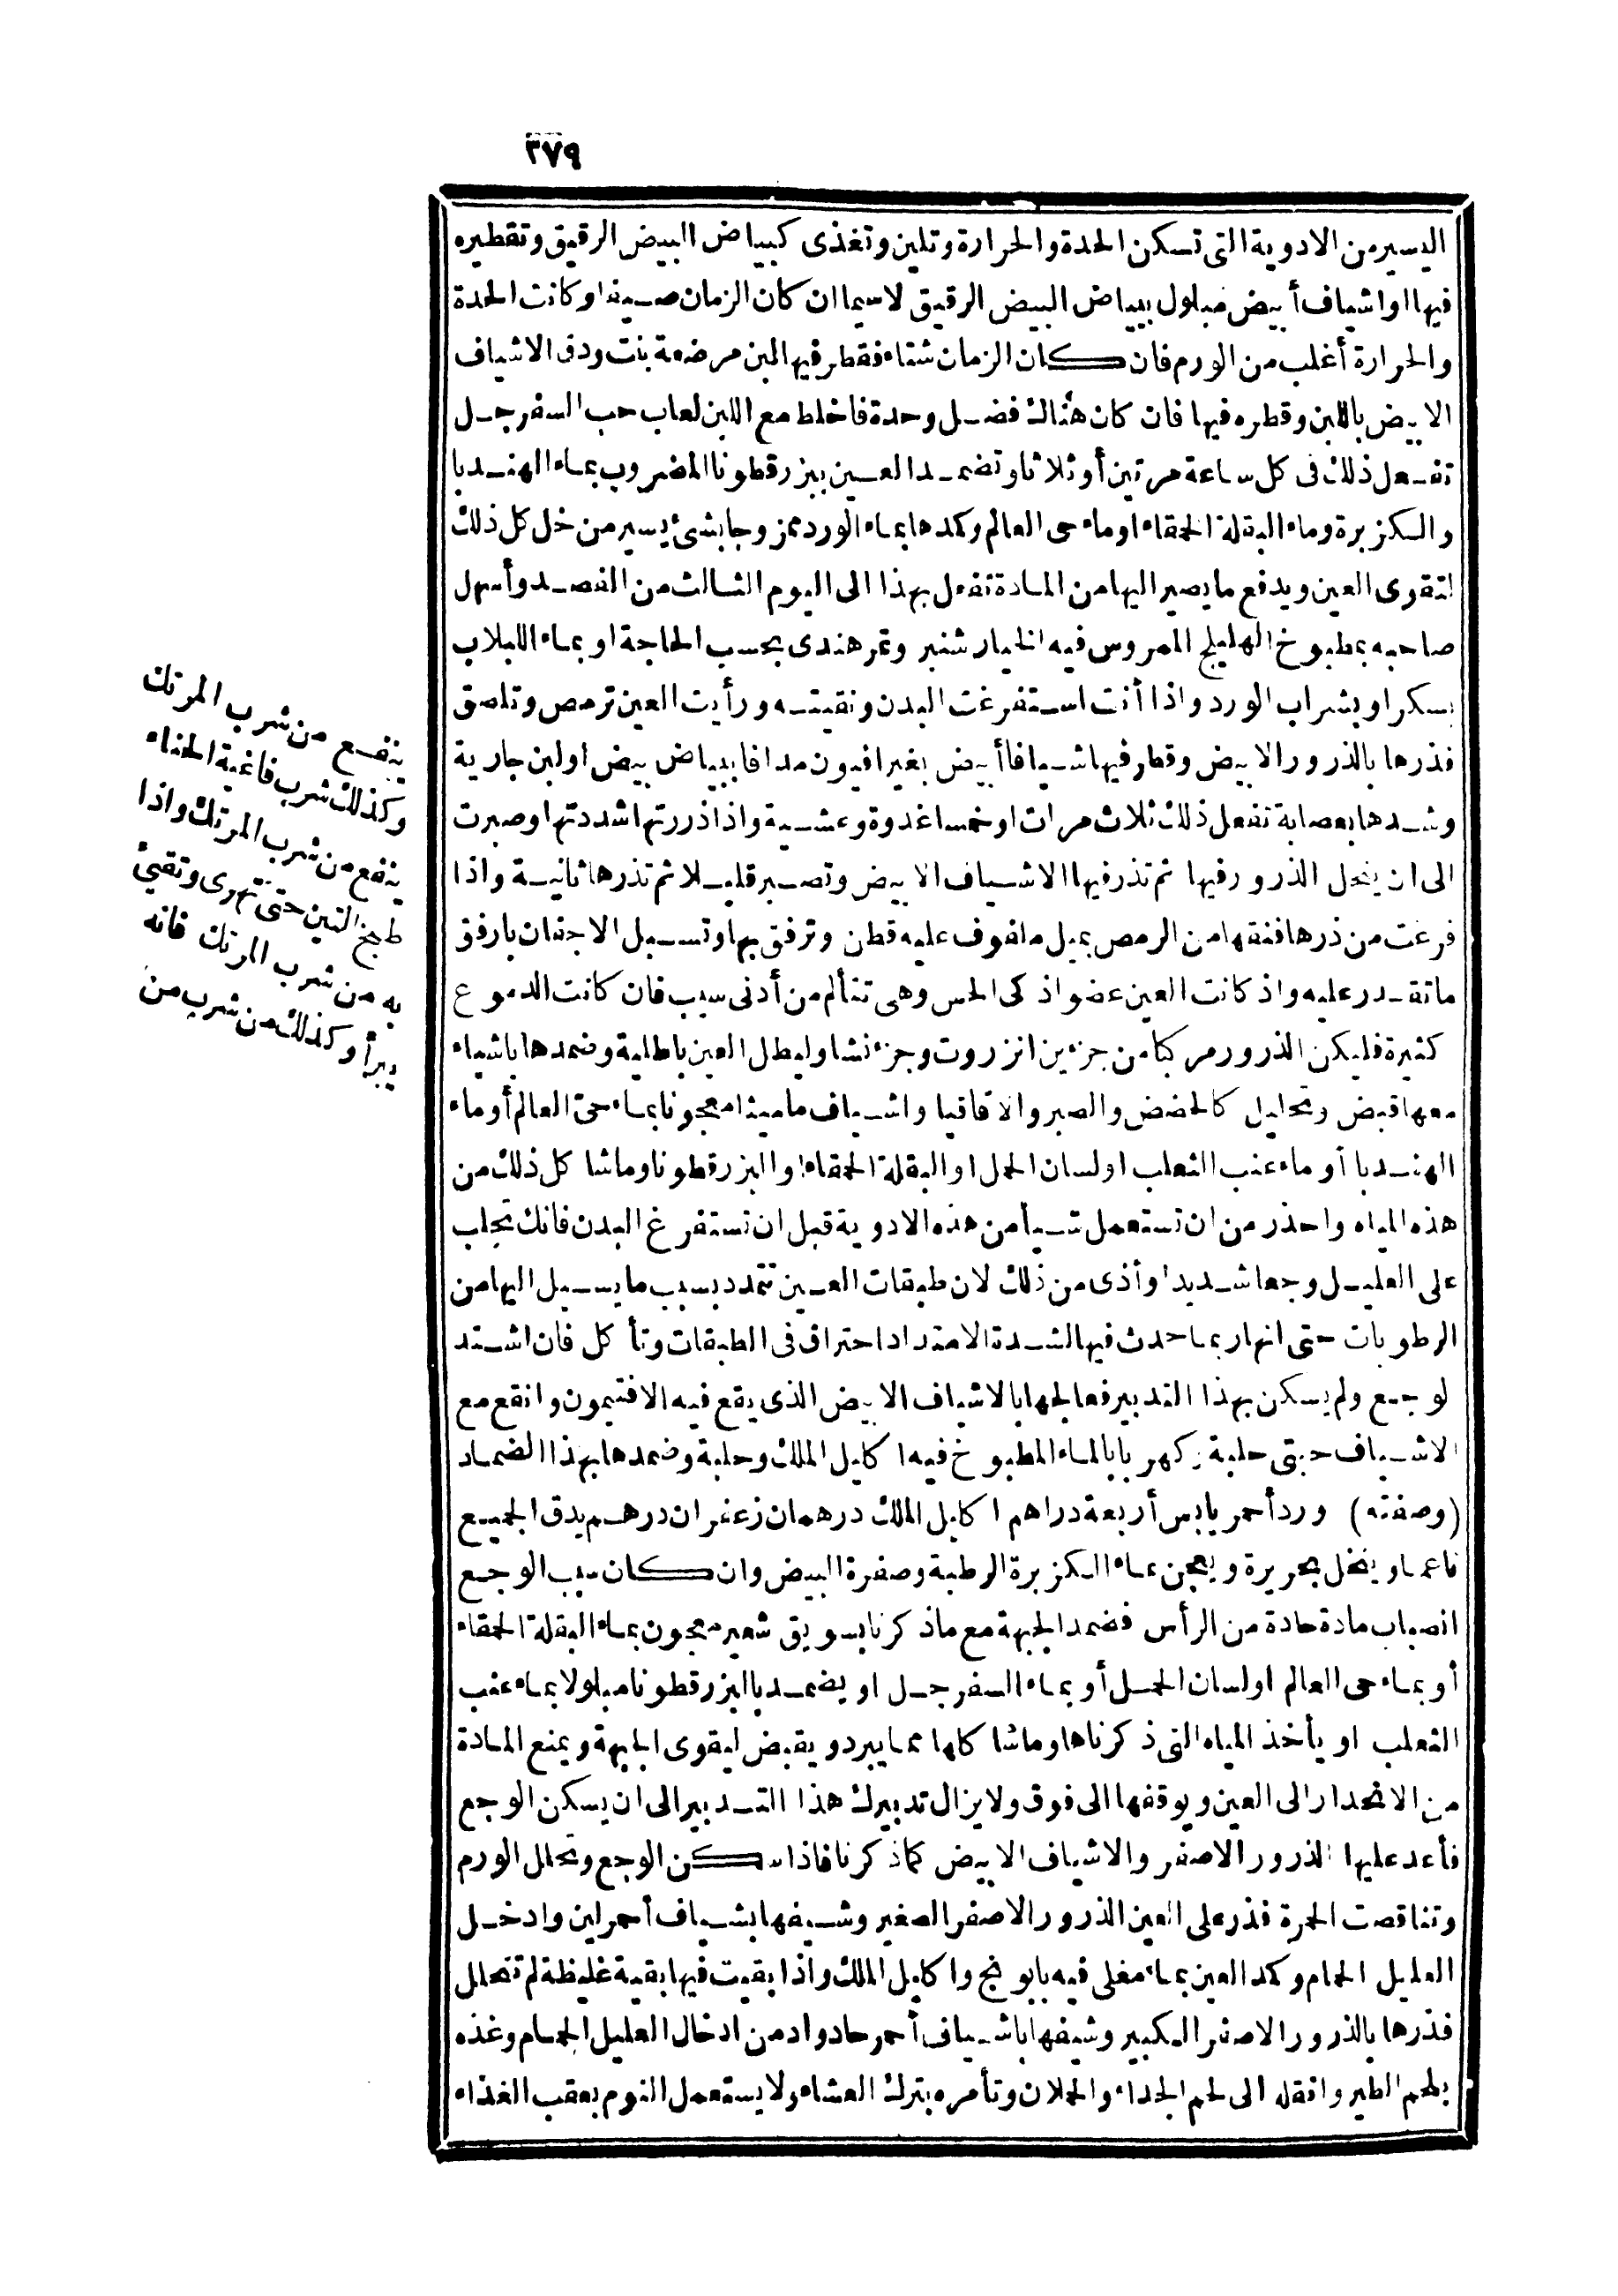 ٣٧٩
اليسير من الادوية التى تسكن الحدة والحرارة وتلين وتغذى كبياض البيض الرقيق وتقطيره
فيها او اشياف أبيض مبلول ببياض البيض الرقيق لاسيما ان كان الزمان صيفا وكانت الحدة
والحرارة أغلب من الورم فان كان الزمان شتاء فقطر فيها لبن مرضعة بنت ودف الاشياف
الابيض باللبن وقطره فيها فان كان هناك فضل وحدة فاخلط مع اللبن لعاب حب السفرجل
تفعل ذلك فى كل ساعة مرتين أو ثلاثا وتضمد العين ببزرقطونا المضروب بماء الهندبا
والكزبرة وماء البقلة الحمقاء او ماء حى العالم وكمدها بماء الورد ممزوجا بشئ يسير من خل كل ذلك
لتقوى العين ويدفع ما يصير اليها من المادة تفعل بهذا الى اليوم الثالث من الفصد وأسهل
صاحبه بمطبوخ الهليلج الممروس فيه الخيار شنبر وتمر هندى بحسب الحاجة او بماء اللبلاب
بسكر او بشراب الورد واذا أنت استفرغت البدن ونقيته ورأيت العين ترمص وتلصق
فذرها بالذرور الابيض وقطر فيها شيافا أبيض بغير افيون مدافا ببياض بيض او لبن جارية
وشدها بعصابة تفعل ذلك ثلاث مرات او خمسا غدوة وعشية واذا ذررتها شددتها وصبرت
الى ان ينحل الذرور فيها ثم تذر فيها الاشياف الابيض وتصبر قليلا ثم تذرها ثانية واذا
فرغت من ذرها فنقها من الرمص بميل ملفوف عليه قطن وترفق بها وتسبل الاجفان بارفق
ما تقدر عليه واذ كانت العين عضوا ذكى الحس وهى تتألم من أدنى سبب فان كانت الدموع
كثيرة فليكن الذرور مركبا من جزءين انزروت وجزء نشا وليطل العين باطلية وضمدها باشياء
معها قبض وتحليل كالحضض والصبر والاقاقيا واشياف ماميثا معجونا بماء حىّ العالم أو ماء
الهندبا أو ماء عنب الثعلب او لسان الحمل او البقلة الحمقاء او البزرقطونا وماشا كل ذلك من
هذه المياه واحذر من ان تستعمل شيأ من هذه الادوية قبل ان تستفرغ البدن فانك تجلب
على العليل وجعا شديدا وأذى من ذلك لان طبقات العين تتمدد بسبب ما يسيل اليها من
الرطوبات حتى انها ربما حدث فيها لشدة الامتداد احتراق فى الطبقات وتأكل فان اشتد
لوجع ولم يسكن بهذا التدبير فعالجها بالاشياف الابيض الذى يقع فيه الافتيمون وانقع مع
الاشياف حبتى حلبة كهربا بالماء المطبوخ فيه اكليل الملك وحلبة وضمدها بهذا الضماد
(وصفته) ورد أحمر يابس أربعة دراهم اكليل الملك درهمان زعفران درهم يدق الجميع
ناعما وينخل بحريرة ويعجن بماء الكزبرة الرطبة وصفرة البيض وان كان سبب الوجع
انصباب مادة حادة من الرأس فضمد الجبهة مع ما ذكرنا بسويق شعير معجون بماء البقلة الحمقاء
أو بماء حى العالم او لسان الحمل أو بماء السفرجل او يضمد بالبزرقطونا مبلولا بماء عنب
الثعلب او يأخذ المياه التى ذكرناها وماشا كلها مما يبرد ويقبض ليقوى الجبهة ويمنع المادة
من الانحدار الى العين ويوقفها الى فوق ولا يزال تدبيرك هذا التدبير الى ان يسكن الوجع
فأعد عليها الذرور الاصفر والاشياف الابيض كما ذكرنا فاذا سكن الوجع وتحلل الورم
وتناقصت الحمرة فذر على العين الذرور الاصفر الصغير وشيفها بشياف أحمر لين وادخل
العليل الحمام وكمد العين بماء مغلى فيه بابونج واكليل الملك واذا بقيت فيها بقية غليظة لم تتحلل
فذرها بالذرور الاصفر الكبير وشيفها باشياف أحمر حاد وادمن ادخال العليل الحمام وغذه
بلحم الطير وانقله الى لحم الجداء والحملان وتأمره بترك العشاء ولا يستعمل النوم بعقب الغذاء
ينفع من شرب المرتك
وكذلك شرب فاغية الحناء
ينفع من شرب المرتك واذا
طبخ التين حتى تهرى وتقيئ
به من شرب المرتك فانه
يبرأ وكذلك من شرب من